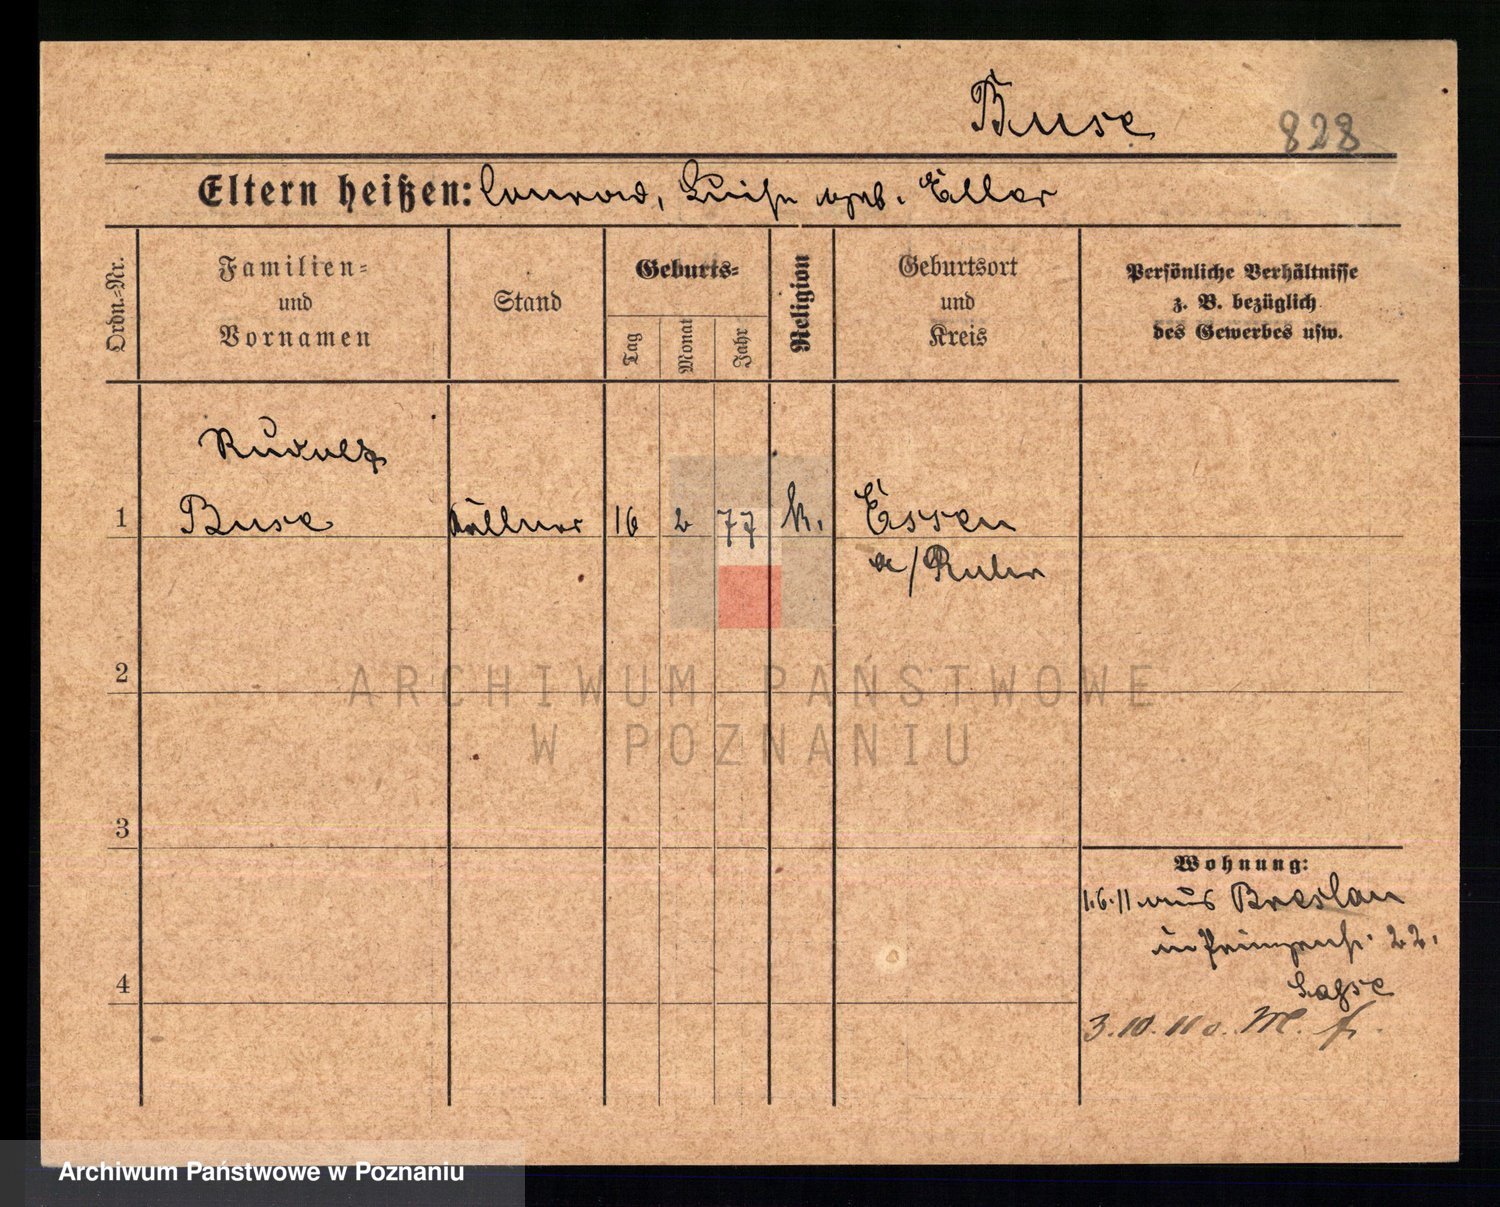 Buse
828
Eltern heißen: Conrad, Luise geb. Eller
Ordn.-Nr.
Familien-
und
Vornamen
Stand
Geburts-
Tag
Monat
Jahr
Religion
Geburtsort
und
Kreis
Persönliche Verhältnisse
z. B. bezüglich
des Gewerbes usw.
Rudolf
1 Buse Kellner 16 2 77 k. Essen
a/Ruhr
2
3
4
ARCHIWUM PAŃSTWOWE
W POZNANIU
Wohnung:
1.6.11 aus Breslau
in Prinzenst. 22.
3.10.11
Archiwum Państwowe w Poznaniu